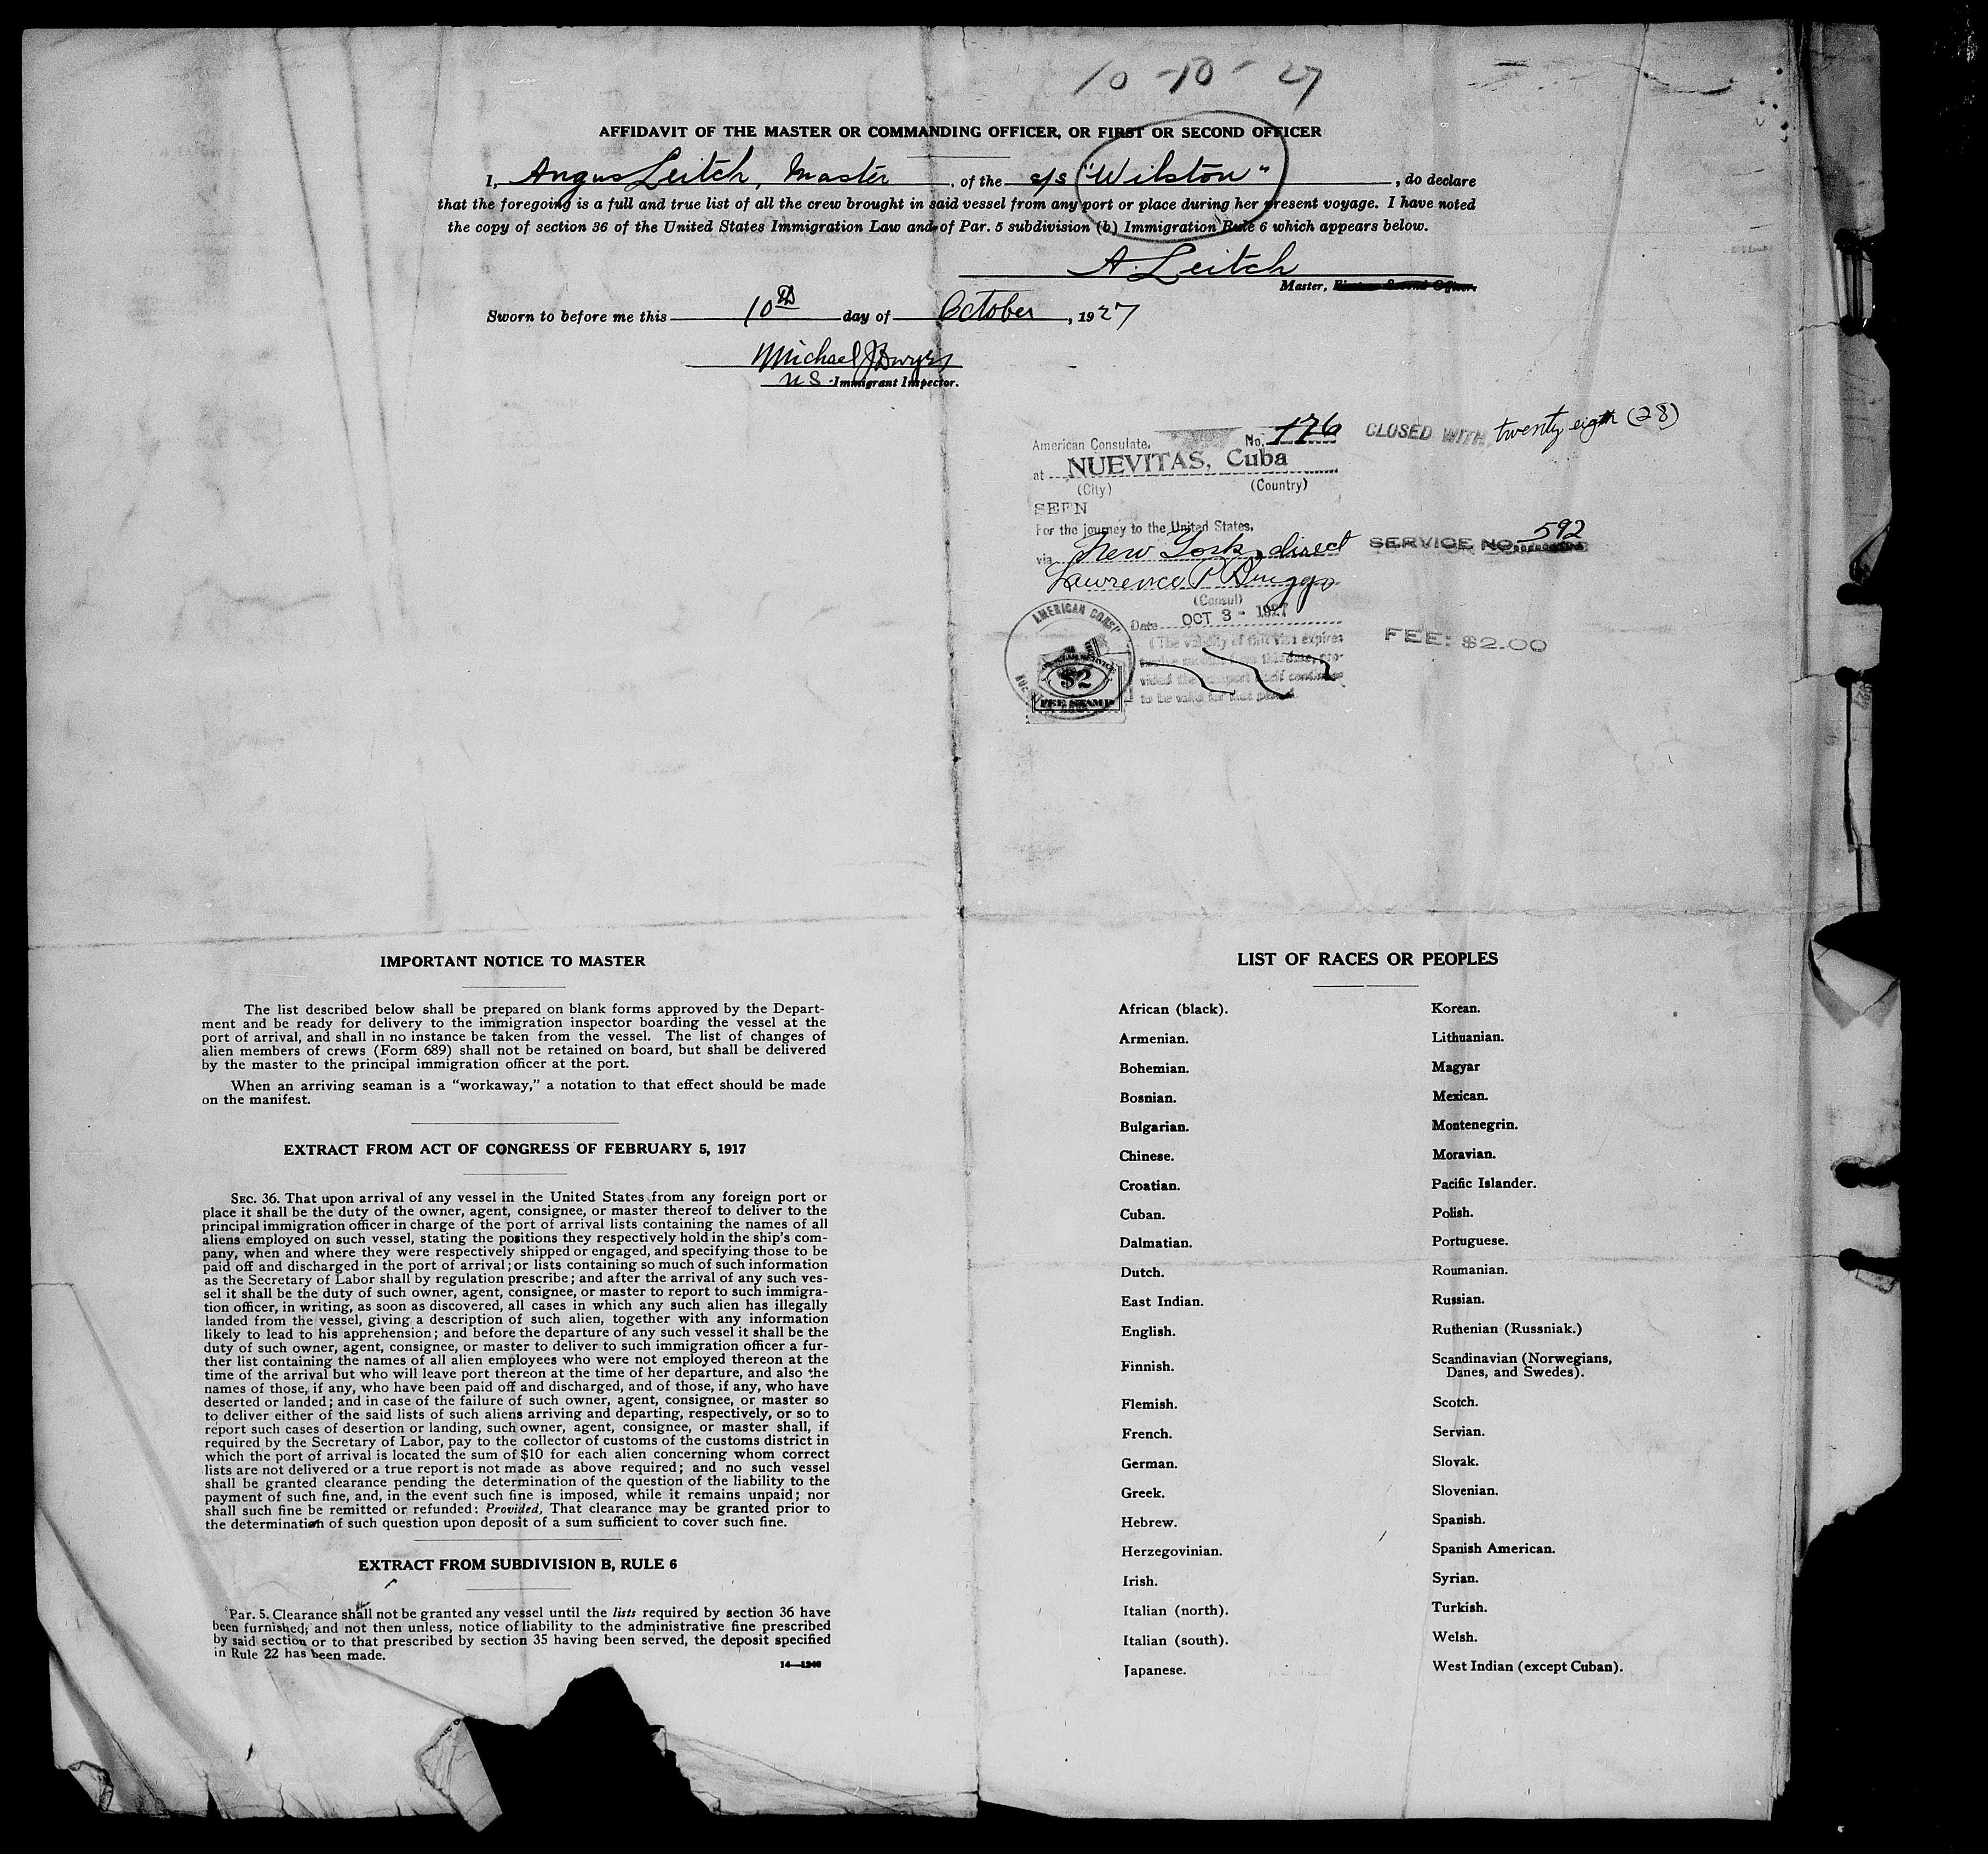 10-10-27
AFFIDAVIT OF THE MASTER OR COMMANDING OFFICER, OR FIRST OR SECOND OFFICER
I, Angus Leitch, Master, of the s/s "Wilston", do declare
that the foregoing is a full and true list of all the crew brought in said vessel from any port or place during her present voyage. I have noted
the copy of section 36 of the United States Immigration Law and of Par. 5 subdivision (b) Immigration Rule 6 which appears below.
A. Leitch
Master, First or Second Officer.
Sworn to before me this 10th day of October, 1927
Michael J Dwyer
U S Immigrant Inspector.
American Consulate, No. 176
CLOSED WITH twenty eight (28)
at NUEVITAS, Cuba
(City) (Country)
SEEN
For the journey to the United States,
via New York, direct
SERVICE NO. 592
Lawrence P Briggs
(Consul)
Date OCT 3 - 1927
(The validity of this visa expires
twelve months from this date, pro-
vided the passport itself continues
to be valid for that period.
FEE: $2.00
AMERICAN CONS
$2
FEE STAMP
IMPORTANT NOTICE TO MASTER
The list described below shall be prepared on blank forms approved by the Depart-
ment and be ready for delivery to the immigration inspector boarding the vessel at the
port of arrival, and shall in no instance be taken from the vessel. The list of changes of
alien members of crews (Form 689) shall not be retained on board, but shall be delivered
by the master to the principal immigration officer at the port.
When an arriving seaman is a "workaway," a notation to that effect should be made
on the manifest.
EXTRACT FROM ACT OF CONGRESS OF FEBRUARY 5, 1917
SEC. 36. That upon arrival of any vessel in the United States from any foreign port or
place it shall be the duty of the owner, agent, consignee, or master thereof to deliver to the
principal immigration officer in charge of the port of arrival lists containing the names of all
aliens employed on such vessel, stating the positions they respectively hold in the ship's com-
pany, when and where they were respectively shipped or engaged, and specifying those to be
paid off and discharged in the port of arrival; or lists containing so much of such information
as the Secretary of Labor shall by regulation prescribe; and after the arrival of any such ves-
sel it shall be the duty of such owner, agent, consignee, or master to report to such immigra-
tion officer, in writing, as soon as discovered, all cases in which any such alien has illegally
landed from the vessel, giving a description of such alien, together with any information
likely to lead to his apprehension; and before the departure of any such vessel it shall be the
duty of such owner, agent, consignee, or master to deliver to such immigration officer a fur-
ther list containing the names of all alien employees who were not employed thereon at the
time of the arrival but who will leave port thereon at the time of her departure, and also the
names of those, if any, who have been paid off and discharged, and of those, if any, who have
deserted or landed; and in case of the failure of such owner, agent, consignee, or master so
to deliver either of the said lists of such aliens arriving and departing, respectively, or so to
report such cases of desertion or landing, such owner, agent, consignee, or master shall, if
required by the Secretary of Labor, pay to the collector of customs of the customs district in
which the port of arrival is located the sum of $10 for each alien concerning whom correct
lists are not delivered or a true report is not made as above required; and no such vessel
shall be granted clearance pending the determination of the question of the liability to the
payment of such fine, and, in the event such fine is imposed, while it remains unpaid; nor
shall such fine be remitted or refunded: Provided, That clearance may be granted prior to
the determination of such question upon deposit of a sum sufficient to cover such fine.
EXTRACT FROM SUBDIVISION B, RULE 6
Par. 5. Clearance shall not be granted any vessel until the lists required by section 36 have
been furnished; and not then unless, notice of liability to the administrative fine prescribed
by said section or to that prescribed by section 35 having been served, the deposit specified
in Rule 22 has been made.
14—1240
LIST OF RACES OR PEOPLES
African (black).
Armenian.
Bohemian.
Bosnian.
Bulgarian.
Chinese.
Croatian.
Cuban.
Dalmatian.
Dutch.
East Indian.
English.
Finnish.
Flemish.
French.
German.
Greek.
Hebrew.
Herzegovinian.
Irish.
Italian (north).
Italian (south).
Japanese.
Korean.
Lithuanian.
Magyar
Mexican.
Montenegrin.
Moravian.
Pacific Islander.
Polish.
Portuguese.
Roumanian.
Russian.
Ruthenian (Russniak.)
Scandinavian (Norwegians,
Danes, and Swedes).
Scotch.
Servian.
Slovak.
Slovenian.
Spanish.
Spanish American.
Syrian.
Turkish.
Welsh.
West Indian (except Cuban).